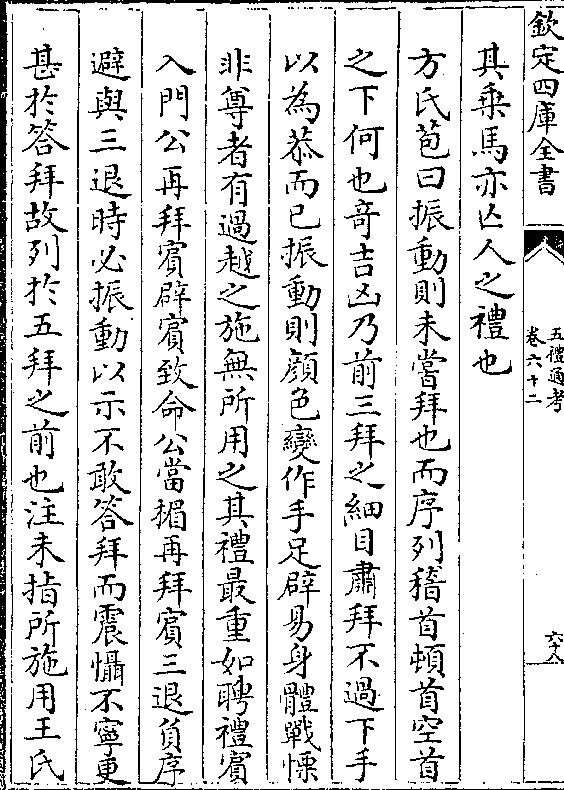 欽定四庫全書
五禮通考
卷六十二
六十八
其乘馬亦亾人之禮也
方氏苞曰振動則未嘗拜也而序列稽首頓首空首
之下何也竒吉凶乃前三拜之細目肅拜不過下手
以為恭而已振動則顔色變作手足辟易身體戰慄
非尊者有過越之施無所用之其禮最重如聘禮賓
入門公再拜賓辟賓致命公當楣再拜賓三退負序
避與三退時必振動以示不敢答拜而震懾不寧更
甚於答拜故列於五拜之前也注未指所施用王氏